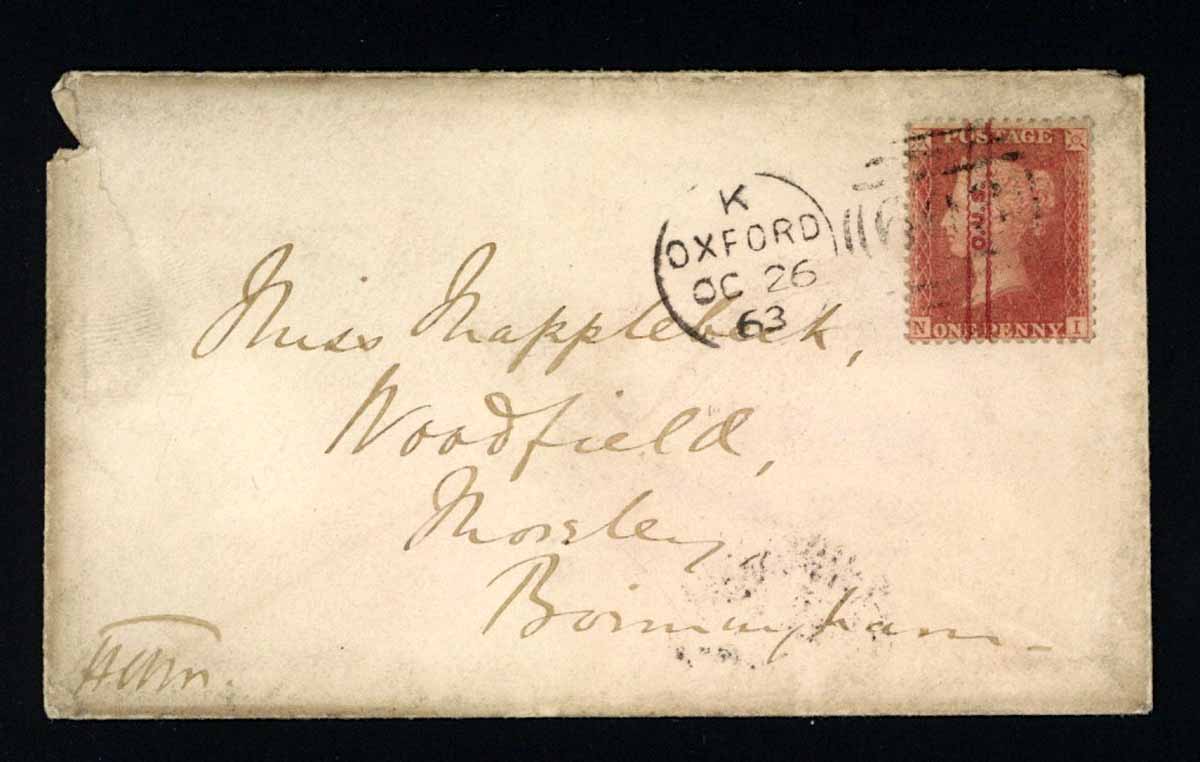 POSTAGE
O.U.S.
N ONE PENNY I
K
OXFORD
OC 26
63
Miss Mapplebeck,
Woodfield,
Moseley
Birmingham